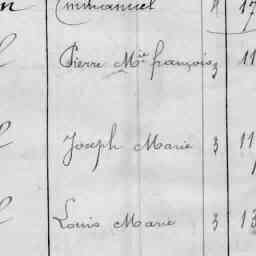 Emmanuel 4 17
Pierre Mie françois 3 11
Joseph Marie 3 11
Louis Marie 3 13